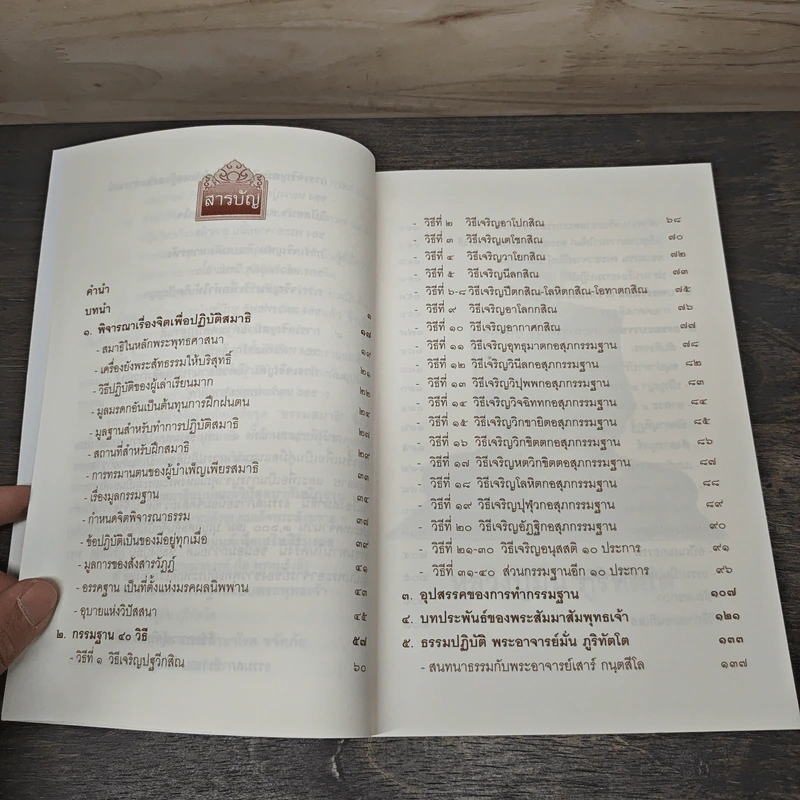 สารบัญ
คำนำ
บทนำ ๑
๑. พิจารณาเรื่องจิตเพื่อปฏิบัติสมาธิ ๑๗
- สมาธิในหลักพระพุทธศาสนา ๑๙
- เครื่องยังพระสัทธรรมให้บริสุทธิ์ ๒๑
- วิธีปฏิบัติของผู้เล่าเรียนมาก ๒๒
- มูลมรดกอันเป็นต้นทุนการฝึกฝนตน ๒๔
- มูลฐานสำหรับทำการปฏิบัติสมาธิ ๒๗
- สถานที่สำหรับฝึกสมาธิ ๒๙
- การทรมานตนของผู้บำเพ็ญเพียรสมาธิ ๓๓
- เรื่องมูลกรรมฐาน ๓๔
- กำหนดจิตพิจารณาธรรม ๓๗
- ข้อปฏิบัติเป็นของมีอยู่ทุกเมื่อ ๓๙
- มูลการของสังสารวัฏฏ์ ๔๑
- อรรคฐาน เป็นที่ตั้งแห่งมรรคผลนิพพาน ๔๓
- อุบายแห่งวิปัสสนา ๔๕
๒. กรรมฐาน ๔๐ วิธี ๕๗
- วิธีที่ ๑ วิธีเจริญปฐวีกสิณ ๖๐
- วิธีที่ ๒ วิธีเจริญอาโปกสิณ ๖๘
- วิธีที่ ๓ วิธีเจริญเตโชกสิณ ๗๐
- วิธีที่ ๔ วิธีเจริญวาโยกสิณ ๗๒
- วิธีที่ ๕ วิธีเจริญนีลกสิณ ๗๓
- วิธีที่ ๖-๘ วิธีเจริญปีตกสิณ-โลหิตกสิณ-โอทาตกสิณ ๗๕
- วิธีที่ ๙ วิธีเจริญอาโลกกสิณ ๗๖
- วิธีที่ ๑๐ วิธีเจริญอากาศกสิณ ๗๗
- วิธีที่ ๑๑ วิธีเจริญอุทธุมาตกอสุภกรรมฐาน ๗๘
- วิธีที่ ๑๒ วิธีเจริญวินีลกอสุภกรรมฐาน ๘๒
- วิธีที่ ๑๓ วิธีเจริญวิปุพพกอสุภกรรมฐาน ๘๓
- วิธีที่ ๑๔ วิธีเจริญวิจฉิททกอสุภกรรมฐาน ๘๔
- วิธีที่ ๑๕ วิธีเจริญวิกขายิตอสุภกรรมฐาน ๘๕
- วิธีที่ ๑๖ วิธีเจริญวิกขิตตกอสุภกรรมฐาน ๘๖
- วิธีที่ ๑๗ วิธีเจริญหตวิกขิตตอสุภกรรมฐาน ๘๗
- วิธีที่ ๑๘ วิธีเจริญโลหิตกอสุภกรรมฐาน ๘๘
- วิธีที่ ๑๙ วิธีเจริญปุฬุวกอสุภกรรมฐาน ๘๙
- วิธีที่ ๒๐ วิธีเจริญอัฏฐิกอสุภกรรมฐาน ๙๐
- วิธีที่ ๒๑-๓๐ วิธีเจริญอนุสสติ ๑๐ ประการ ๙๑
- วิธีที่ ๓๑-๔๐ ส่วนกรรมฐานอีก ๑๐ ประการ ๙๖
๓. อุปสรรคของการทำกรรมฐาน ๑๐๗
๔. บทประพันธ์ของพระสัมมาสัมพุทธเจ้า ๑๒๑
๕. ธรรมปฏิบัติ พระอาจารย์มั่น ภูริทัตโต ๑๓๓
- สนทนาธรรมกับพระอาจารย์เสาร์ กนฺตสีโล ๑๓๗